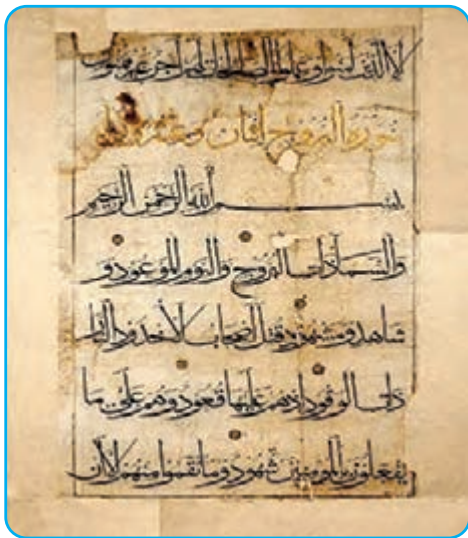 إلا الذين آمنوا وعملوا الصالحات لهم أجر غير ممنون
سورة البروج اثنان وعشرون
بسم الله الرحمن الرحيم
والسماء ذات البروج واليوم الموعود و
شاهد ومشهود قتل أصحاب الأخدود النار
ذات الوقود إذ هم عليها قعود وهم على ما
يفعلون بالمؤمنين شهود وما نقموا منهم إلا أن